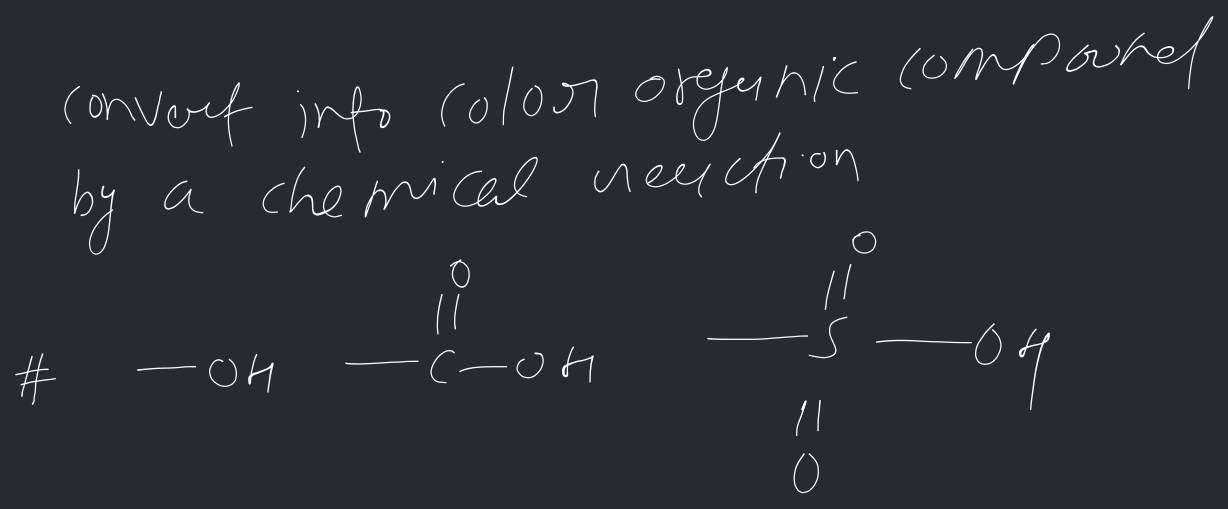 convert into color organic compound
by a chemical reaction
O O
|| ||
# —OH —C—OH —S—OH
||
O